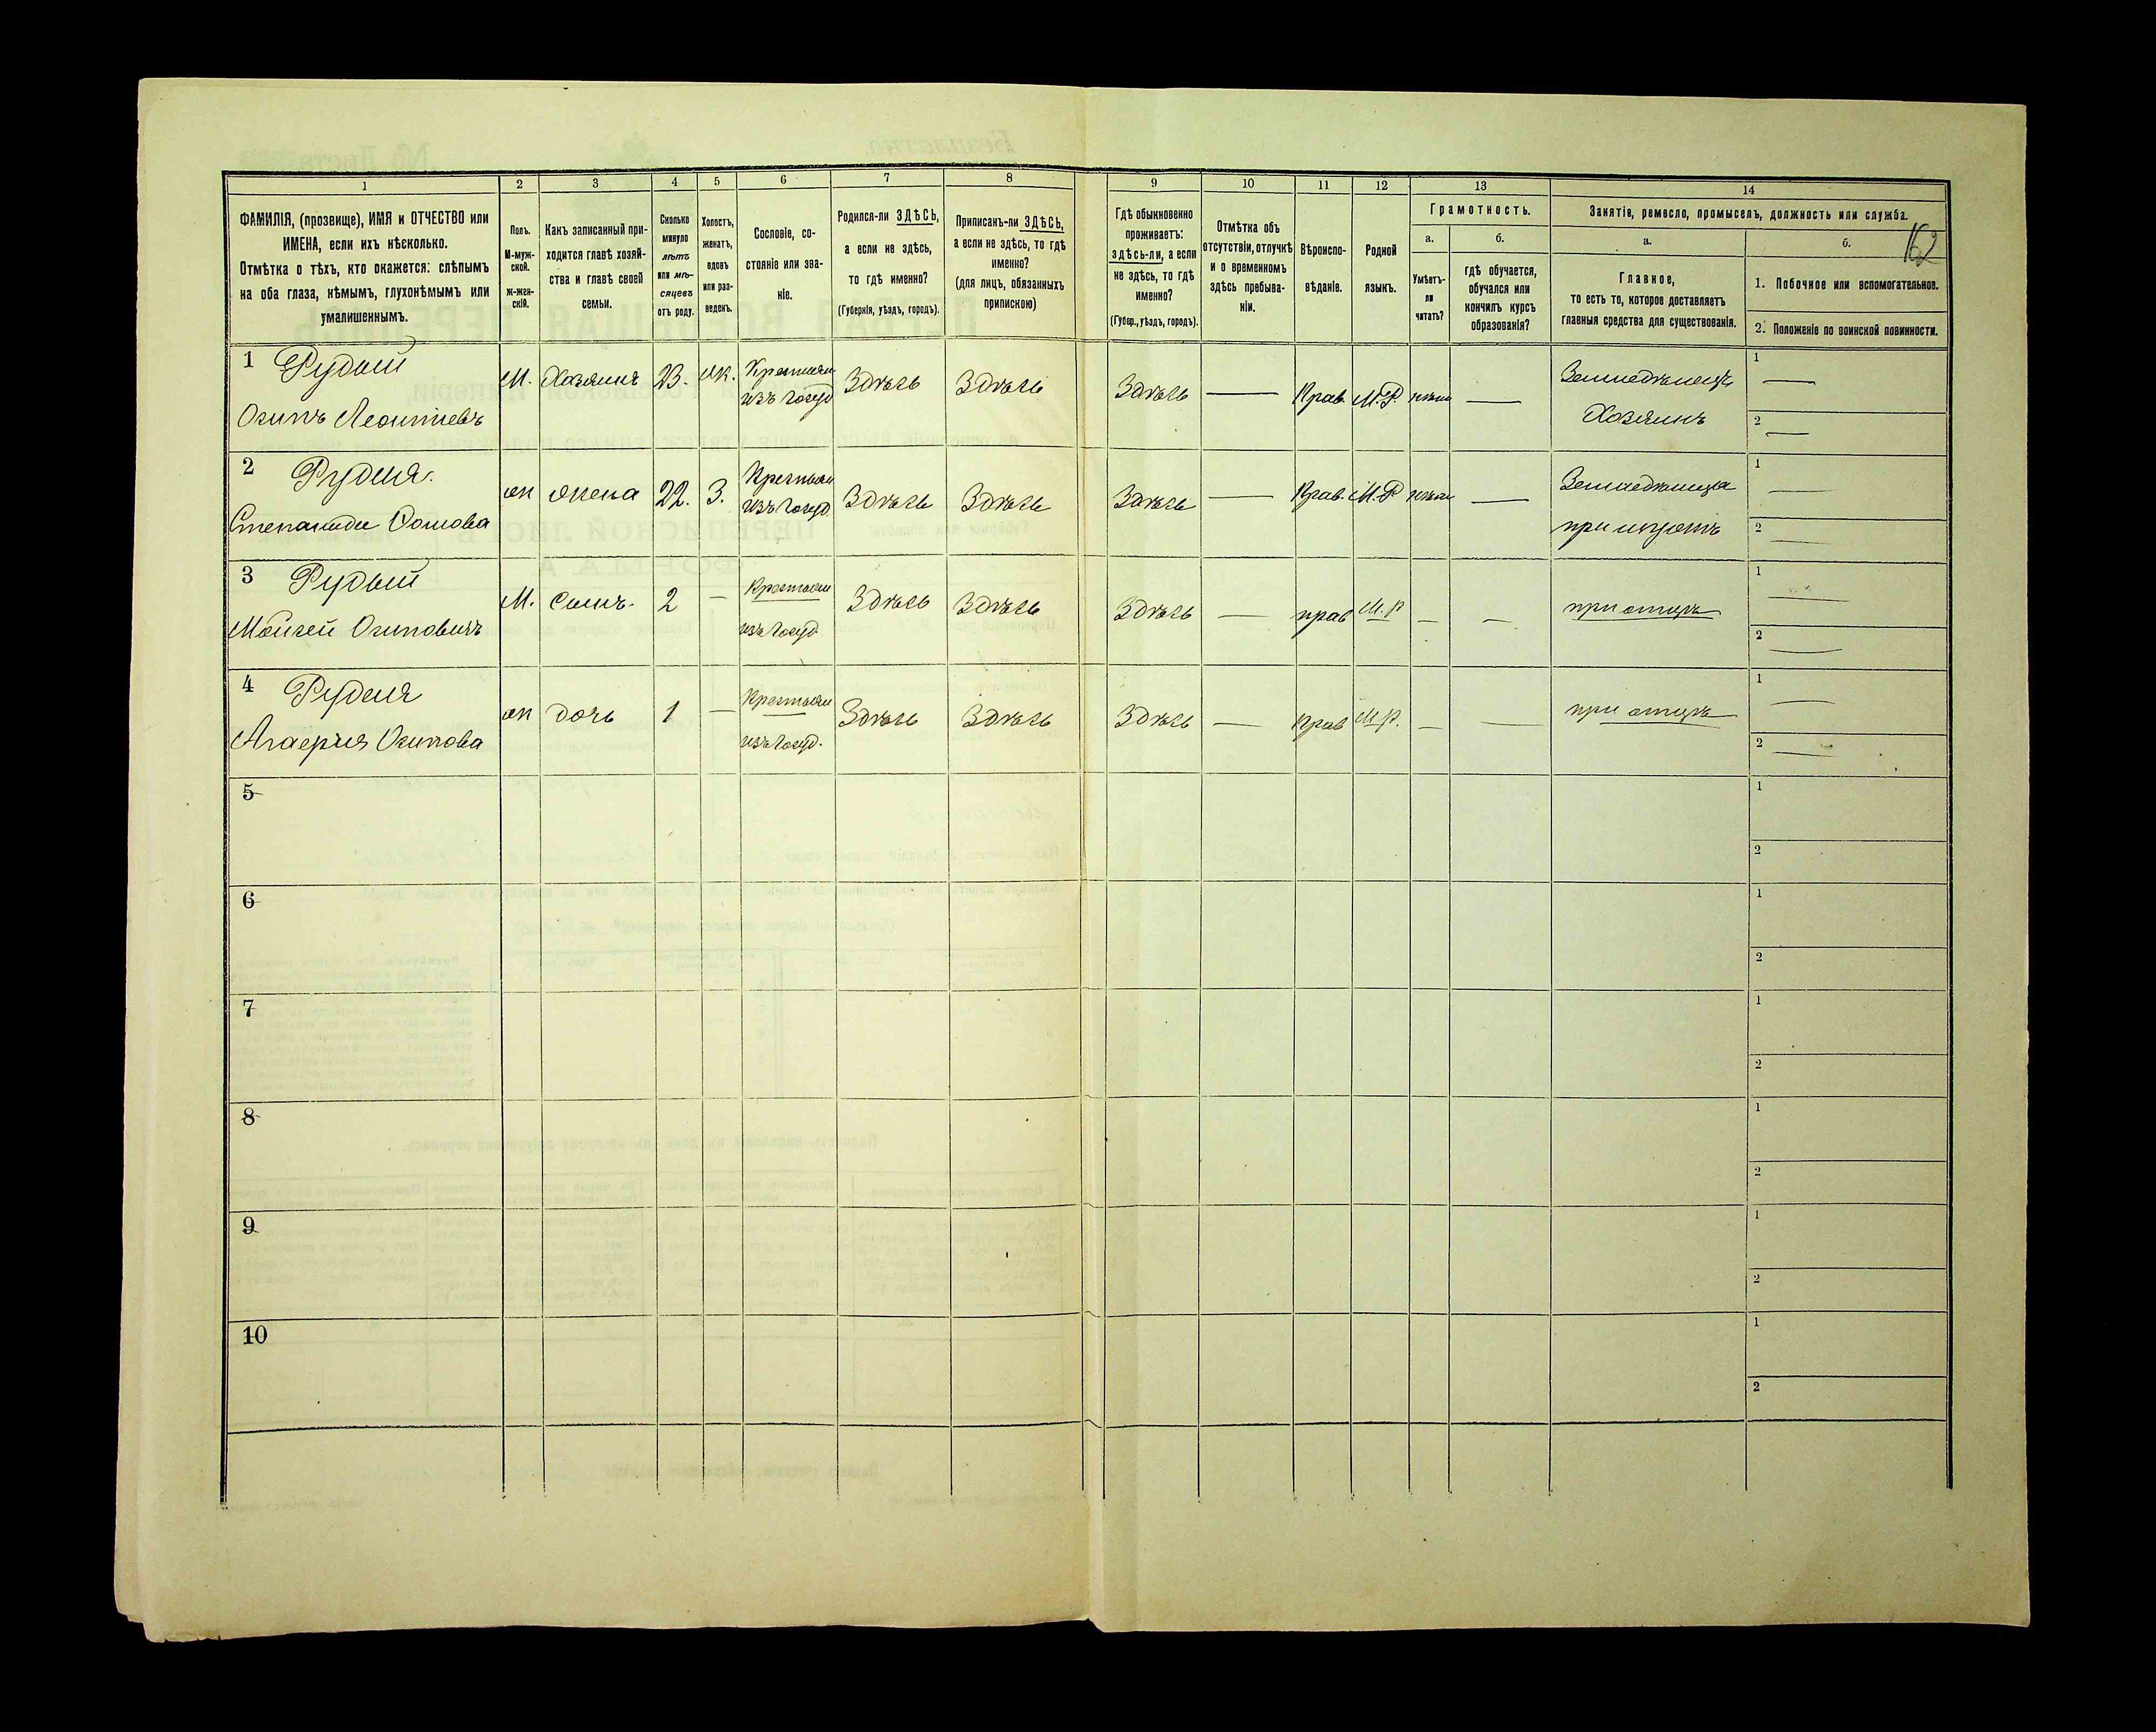 1 2 3 4 5 6 7 8 9 10 11 12 13 14
ФАМИЛІЯ, (прозвище), ИМЯ и ОТЧЕСТВО или
ИМЕНА, если ихъ нѣсколько.
Отмѣтка о тѣхъ, кто окажется: слѣпымъ
на оба глаза, нѣмымъ, глухонѣмымъ или
умалишеннымъ.
Полъ.
М-муж-
ской.
Ж-жен-
скій.
Какъ записанный при-
ходится главѣ хозяй-
ства и главѣ своей
семьи.
Сколько
минуло
лѣтъ
или мѣ-
сяцевъ
отъ роду.
Холостъ,
женатъ,
вдовъ
или раз-
веденъ.
Сословіе, со-
стояніе или зва-
ніе.
Родился-ли ЗДѢСЬ,
а если не здѣсь,
то гдѣ именно?
(Губернія, уѣздъ, городъ).
Приписанъ-ли ЗДѢСЬ,
а если не здѣсь, то гдѣ
именно?
(для лицъ, обязанныхъ
припискою)
Гдѣ обыкновенно
проживаетъ:
здѣсь-ли, а если
не здѣсь, то гдѣ
именно?
(Губер., уѣздъ, городъ).
Отмѣтка объ
отсутствіи, отлучкѣ
и о временномъ
здѣсь пребыва-
ніи.
Вѣроиспо-
вѣданіе.
Родной
языкъ.
Грамотность.
а.
Умѣетъ-
ли
читать?
б.
гдѣ обучается,
обучался или
кончилъ курсъ
образованія?
Занятіе, ремесло, промыселъ, должность или служба.
а.
Главное,
то есть то, которое доставляетъ
главныя средства для существованія.
б.
162
1. Побочное или вспомогательное.
2. Положеніе по воинской повинности.
1 Рудый
Осипъ Леонтіевъ
М. Хозяинъ 23. Ж.
Крестьян
изъ госуд
Здѣсь Здѣсь Здѣсь — Прав. М.Р. нѣтъ —
Земледѣлецъ
Хозяинъ
1 —
2 —
2 Рудая.
Степанида Сомова
Ж жена 22. З.
Крестьян
изъ госуд.
Здѣсь Здѣсь Здѣсь — Прав. М.Р нѣтъ —
1 —
2 —
3 Рудый
Мойсей Осиповичъ
М. сынъ. 2 —
Крестьян
изъ госуд.
Здѣсь Здѣсь Здѣсь — прав М.Р — —
при отцѣ
1 —
2 —
4 Рудая
Осипова
Ж дочь 1 —
Крестьян
изъ госуд.
Здѣсь Здѣсь Здѣсь — прав М.Р. — —
при отцѣ
1 —
2 —
5
1
2
6
1
2
7
1
2
8
1
2
9
1
2
10
1
2